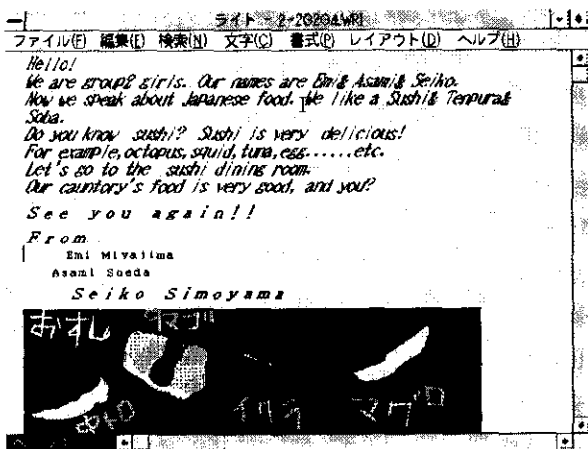 ライト - 2-2020A.WRI
ファイル(F) 編集(E) 検索(N) 文字(C) 書式(P) レイアウト(D) ヘルプ(H)
Hello!
We are group2 girls. Our names are Emi& Asami& Seiko.
Now we speak about Japanese food. We like a Sushi& Tenpura&
Soba.
Do you know sushi? Sushi is very delicious!
For example,octopus,squid,tuna,egg......etc.
Let's go to the sushi dining room.
Our cauntory's food is very good, and you?
See you again!!
From
Emi Miyajima
Asami Sueda
Seiko Simoyama
おすし
イクラ
マグロ